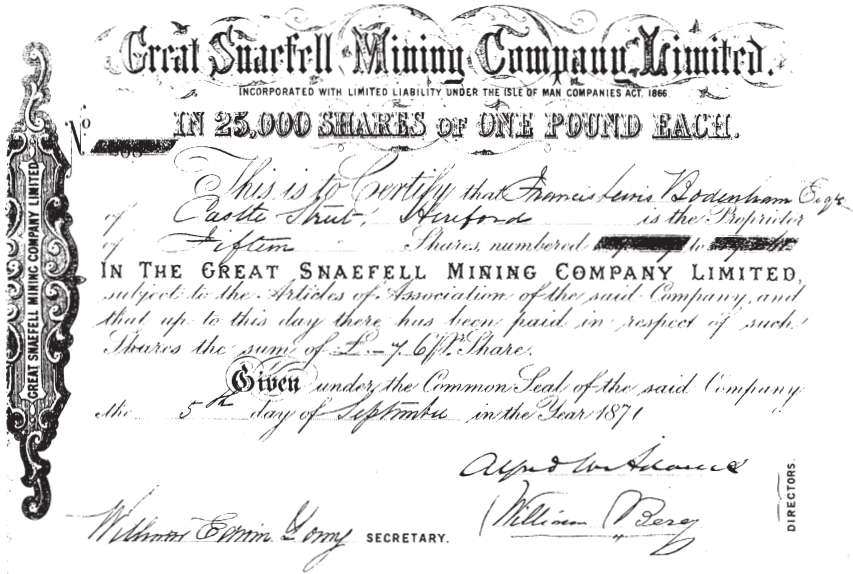 Great Snaefell Mining Company, Limited.
INCORPORATED WITH LIMITED LIABILITY UNDER THE ISLE OF MAN COMPANIES ACT, 1866.
No
IN 25,000 SHARES OF ONE POUND EACH.
This is to Certify that Francis Lewis Bodenham Esqre
of Castle Street, Hereford is the Proprietor
of Fifteen Shares, numbered to
IN THE GREAT SNAEFELL MINING COMPANY LIMITED,
subject to the Articles of Association of the said Company, and
that up to this day there has been paid in respect of such
Shares the sum of £ - 7. 6 pr. Share.
Given under the Common Seal of the said Company
the 5th day of September in the Year 1871
Alfred W. Adams
William Berey
DIRECTORS.
William Edwin SECRETARY.
GREAT SNAEFELL MINING COMPANY LIMITED